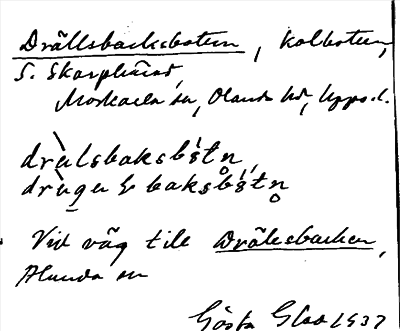 Drällsbacksbotten, kolbotten,
S. Skarplund,
Morkarla sn, Olands hd, Upps. l.
dràlsbaksbòtn,
baksbòtn
Vid väg till Drälsbacken,
Alunda sn
Gösta 1937